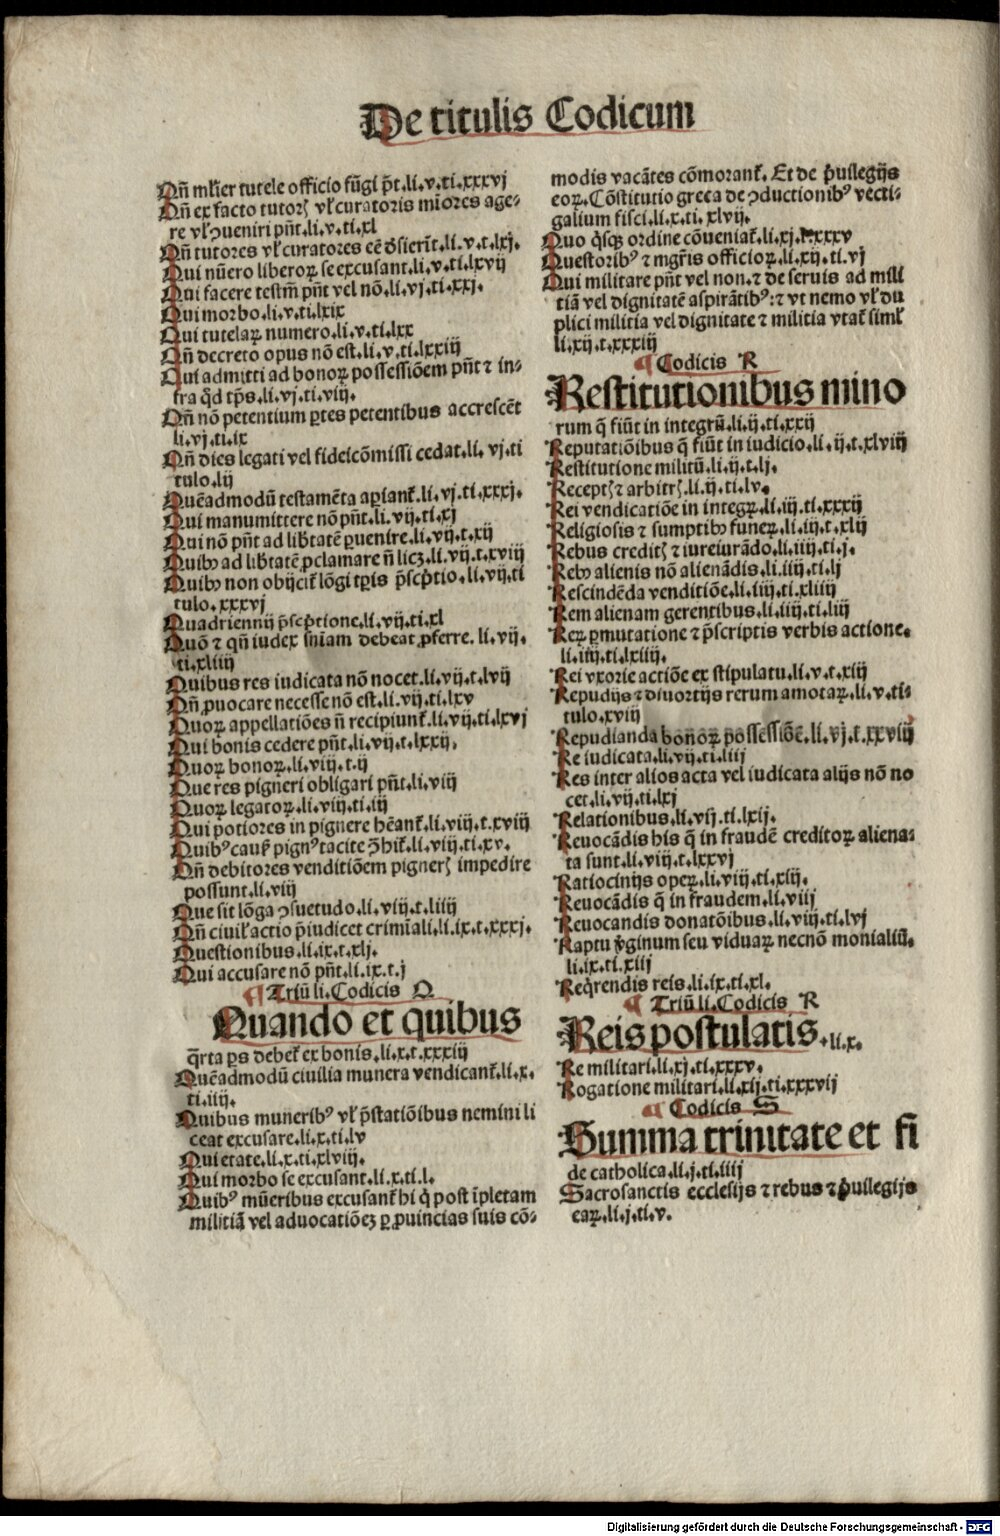 De titulis Codicum
Qñ mĺier tutele officio fũgi p̃t.li.v.ti.xxxvj
Qñ ex facto tutoꝝ vĺ curatoris miores age⸗
re vĺ ↄueniri pñt.li.v.ti.xl
Qñ tutores vĺ curatores eẽ dſierĩt.li.v.t.lxj.
Qui nũero liberoꝝ se excusant.li.v.ti.lxvij
Qui facere testm̃ pñt vel nõ.li.vj.ti.xxj.
Qui morbo.li.v.ti.lxix
Qui tutelaꝝ numero.li.v.ti.lxx
Qñ decreto opus nõ est.li.v.ti.lxxiij
Qui admitti ad bonoꝝ possessiõem pñt ⁊ in⸗
fra q̃d tp̃s.li.vj.ti.viij.
Qñ nõ petentium ꝑtes petentibus accrescẽt
li.vj.ti.ix
Qñ dies legati vel fideicõmissi cedat.li.vj.ti
tulo.lij
Quẽadmodũ testamẽta aꝑiant̃.li.vj.ti.xxxj.
Qui manumittere nõ pñt.li.vij.ti.xj
Qui nõ pñt ad lib̃tatẽ ꝑuenire.li.vij.t.xij
Quibꝫ ad lib̃tatẽ ꝓclamare ñ licꝫ.li.vij.t.xviij
Quibꝫ non obijcit̃ lõgi tꝑis p̃scp̃tio.li.vij.ti
tulo.xxxvj
Quadriennij p̃scp̃tione.li.vij.ti.xl
Quõ ⁊ qñ iudex sñiam debeat ꝓferre.li.vij.
ti.xliiij
Quibus res iudicata nõ nocet.li.vij.t.lvij
Qñ ꝓuocare necesse nõ est.li.vij.ti.lxv
Quoꝝ appellatiões ñ recipiunt̃.li.vij.ti.lxvj
Qui bonis cedere pñt.li.vij.t.lxxij.
Quoꝝ bonoꝝ.li.viij.t.ij
Que res pigneri obligari pñt.li.viij
Quoꝝ legatoꝝ.li.viij.ti.iij
Qui potiores in pignere hẽant̃.li.viij.t.xviij
Quibꝰ cauſ̃ pignꝰ tacite ↄ̃hit̃.li.viij.ti.xv.
Qñ debitores venditiõem pigneꝝ impedire
possunt.li.viij
Que sit lõga ↄsuetudo.li.viij.t.liiij
Qñ civiĺ actio p̃iudicet crimiali.li.ix.t.xxxj.
Questionibus.li.ix.t.xlj.
Qui accusare nõ pñt.li.ix.t.j
¶ Triũ li.Codicis Q
Quando et quibus
q̃rta ꝑs debet̃ ex bonis.li.x.t.xxxiij
Quẽadmodũ ciuilia munera vendicant̃.li.x.
ti.iiij.
Quibus muneribꝰ vĺ p̃statiõibus nemini li
ceat excusare.li.x.ti.lv
Qui etate.li.x.ti.xlviij.
Qui morbo se excusant.li.x.ti.l.
Quibꝰ mũeribus excusant̃ hi q̃ post ĩpletam
militiã vel aduocatiõeꝫ ꝑ ꝓuincias suis cõ⸗
modis vacãtes cõmorant̃. Et de p̃uilegijs
eoꝝ.Cõstitutio greca de ↄductionibꝰ vecti⸗
galium fisci.li.x.ti.xlvij.
Quo q̃sqꝫ ordine cõveniat̃.li.xj.xxxv
Questoribꝰ ⁊ mgr̃is officioꝝ.li.xij.ti.vj
Qui militare pñt vel non.⁊ de seruis ad mili
tiã vel dignitatẽ aspirãtibꝰ:⁊ vt nemo vĺ du
plici militia vel dignitate ⁊ militia vtat̃ simĺ
li.xij.t.xxxiij
¶ Codicis R
Restitutionibus mino
rum q̃ fiũt in integrũ.li.ij.ti.xxij
Reputatiõibus q̃ fiũt in iudicio.li.ij.t.xlviij
Restitutione militũ.li.ij.t.lj.
Receptꝭ ⁊ arbitrꝭ.li.ij.ti.lv.
Rei vendicatiõe in integꝝ.li.iij.ti.xxxij
Religiosis ⁊ sumptibꝫ funeꝝ.li.iij.t.xlij
Rebus creditꝭ ⁊ iureiurãdo.li.iiij.ti.j.
Rebꝫ alienis nõ alienãdis.li.iiij.ti.lj
Rescindẽda venditiõe.li.iiij.ti.xliiij
Rem alienam gerentibus.li.iiij.ti.liij
Reꝝ ꝑmutatione ⁊ p̃scriptis verbis actione.
li.iiij.ti.lxiiij.
Rei vxorie actiõe ex stipulatu.li.v.t.xiij
Repudijs ⁊ diuortijs rerum amotaꝝ.li.v.ti⸗
tulo.xviij
Repudianda bonoꝝ possessiõe.li.vj.t.xxviij
Re iudicata.li.vij.ti.liij
Res inter alios acta vel iudicata alijs nõ no
cet.li.vij.ti.lxj
Relationibus.li.vij.ti.lxij.
Reuocãdis his q̃ in fraudẽ creditoꝝ aliena⸗
ta sunt.li.viij.t.lxxvj
Ratiocinijs opeꝝ.li.viij.ti.xiij.
Reuocãdis q̃ in fraudem.li.viij
Reuocandis donatõibus.li.viij.ti.lvj
Raptu v̓ginum seu viduaꝝ necnõ monialiũ.
li.ix.ti.xiij
Req̃rendis reis.li.ix.ti.xl.
¶ Triũ li.Codicis R
Reis postulatis.li.x.
Re militari.li.xij.ti.xxxv.
Rogatione militari.li.xij.ti.xxxvij
¶ Codicis S
Summa trinitate et fi
de catholica.li.j.ti.iiij
Sacrosanctis ecclesijs ⁊ rebus ⁊ p̃uilegijs
eaꝝ.li.j.ti.v.
Digitalisierung gefördert durch die Deutsche Forschungsgemeinschaft - DFG